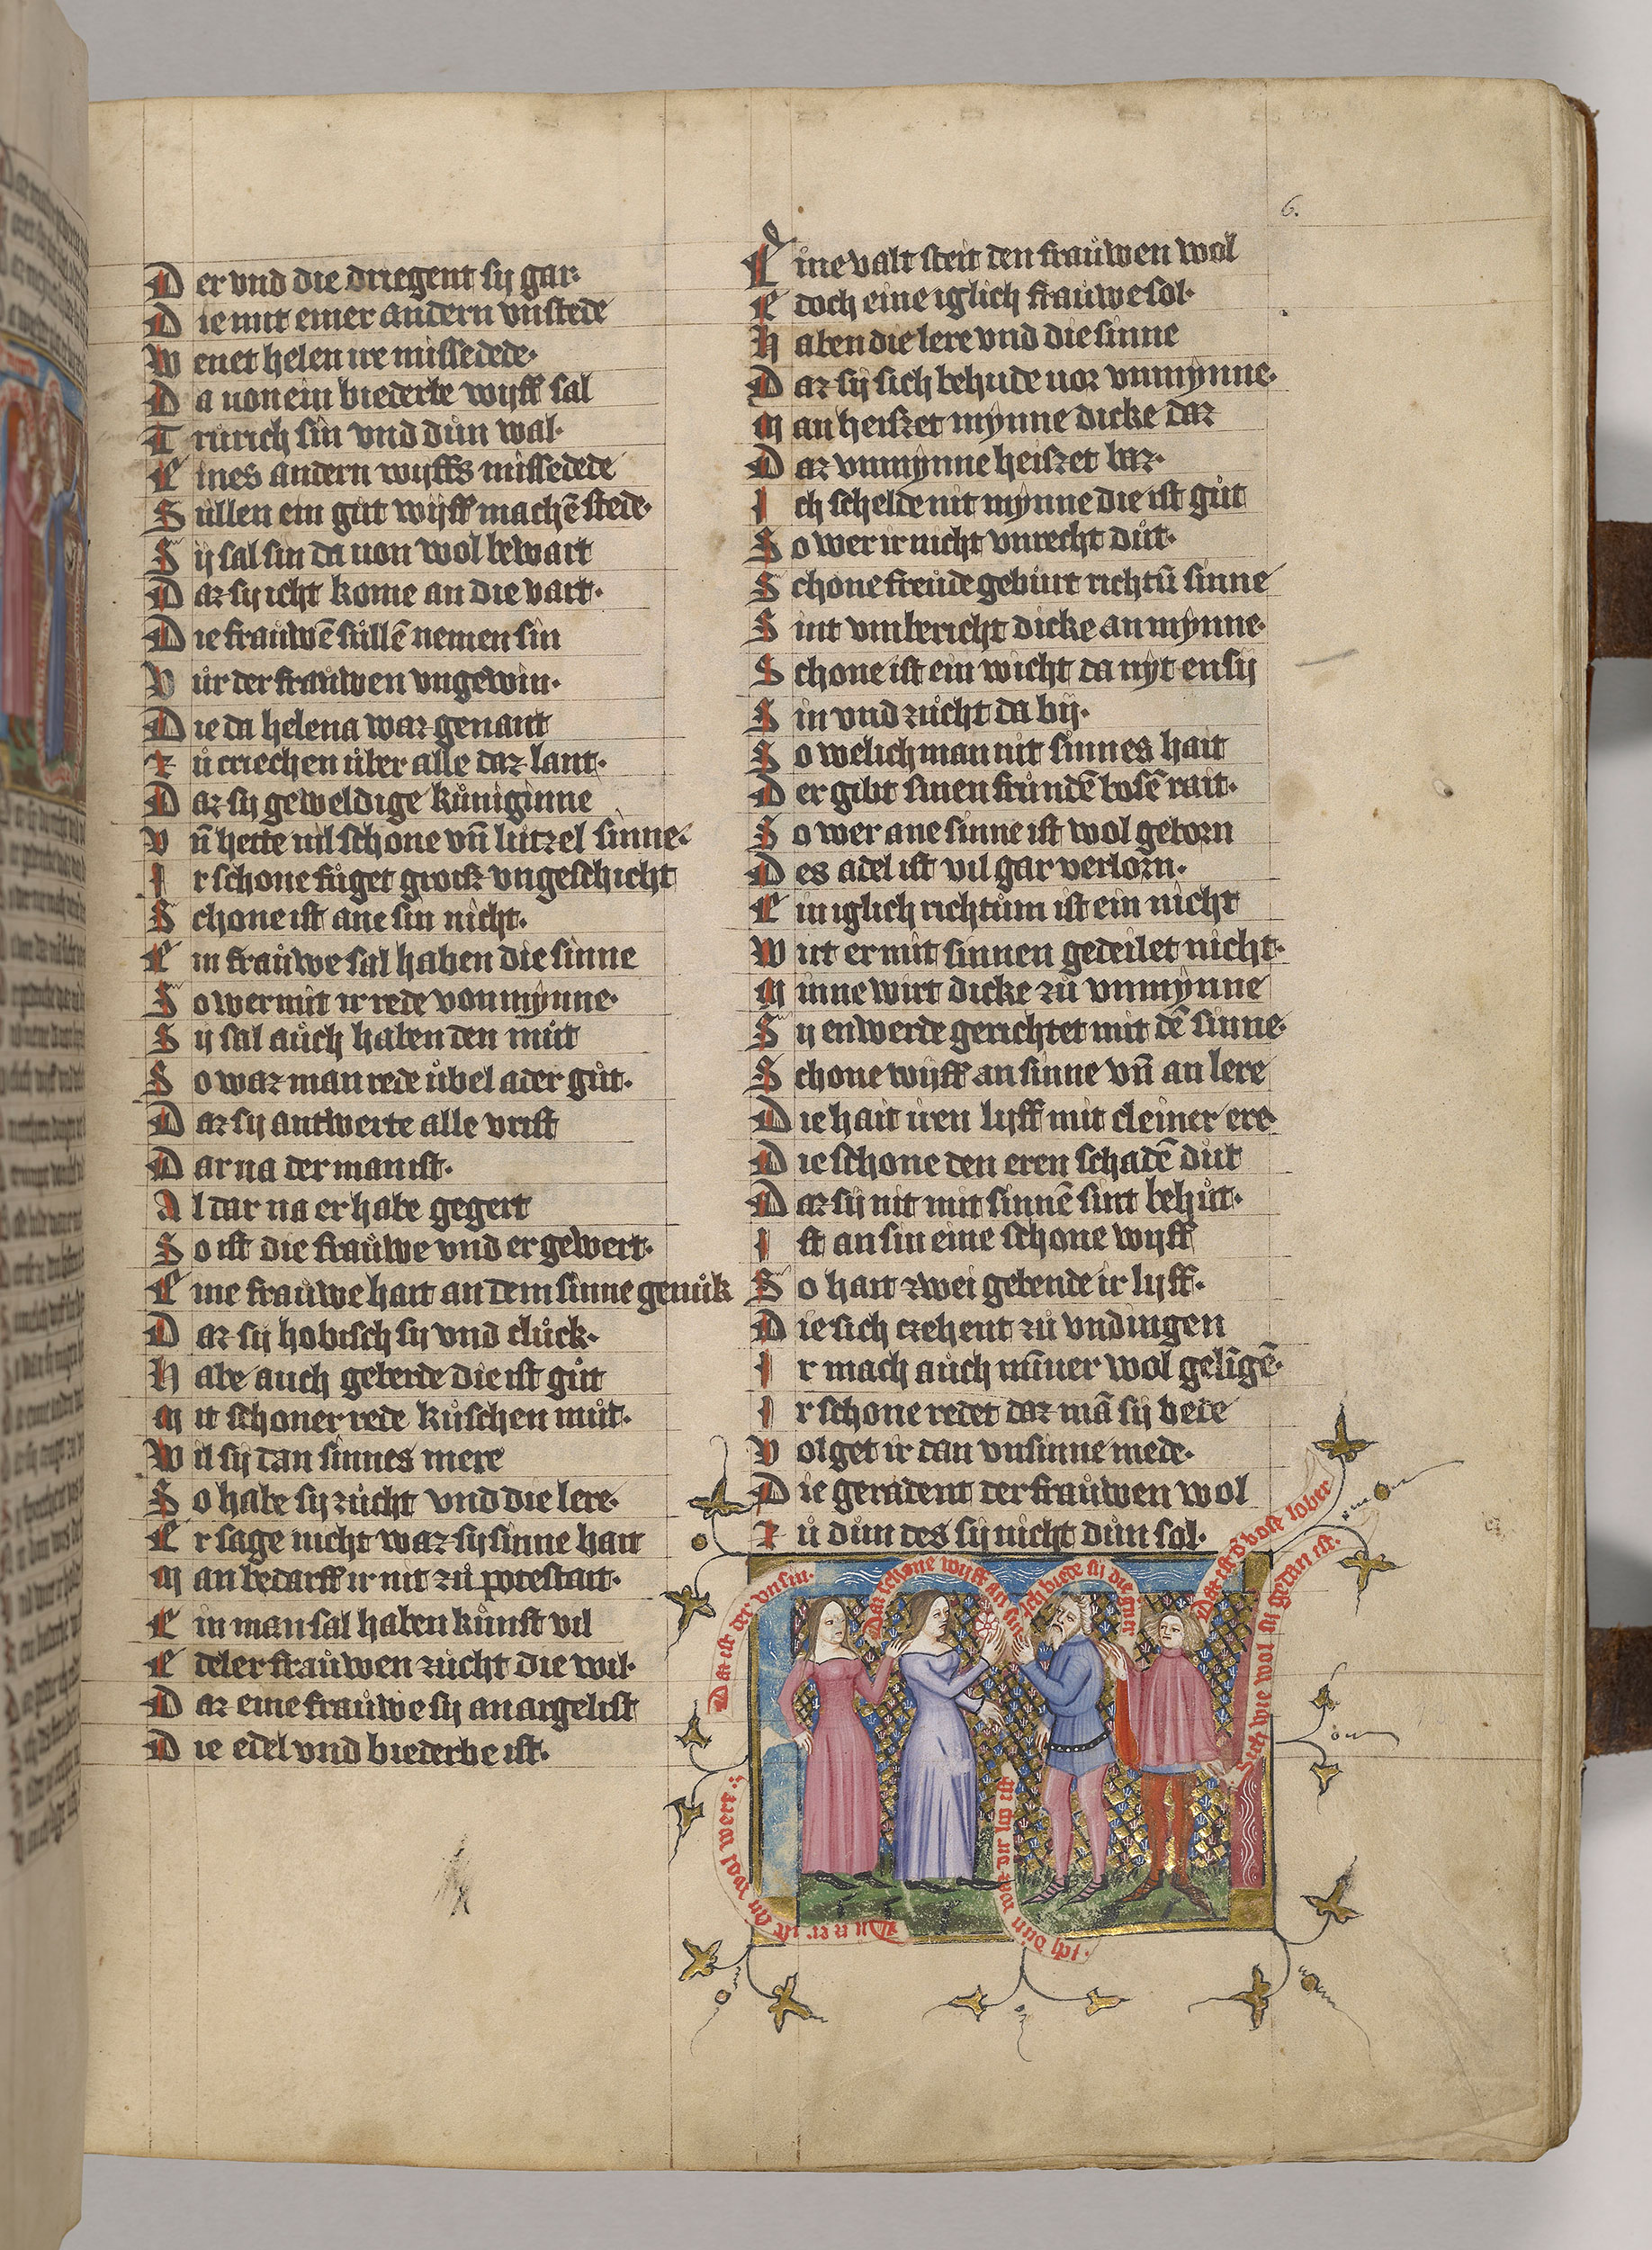 6.
Der vnd die driegent sij gar·
Die mit einer andern vnstede
Wenet helen ire missedede·
Da uon ein biederbe wijff sal
Trurich sin vnd důn wal·
Eines andern wijffs missedede
Sullen ein gut wijff machē stede·
Sij sal sin da uon wol bewart
Daz sij icht kome an die vart·
Die fraůwē sůllē nemen sin
Vůr der fraůwen vngewin·
Die da helena waz genant
Zů criechen ůber alle daz lant·
Daz sij geweldige kůniginne
Vn̄ hette uil schone vn̄ lutzel sinne·
Ir schone fůget grosz vngeschicht
Schone ist ane sin nicht·
Ein fraůwe sal haben die sinne
So wer mit ir rede von mynne·
Sij sal aůch haben den můt
So waz man rede ůbel ader gůt·
Daz sij antwerte alle vrist
Dar na der man ist·
Al dar na er habe gegert
So ist die fraůwe vnd er gewert·
Eine fraůwe hait an dem sinne genůk
Daz sij hobisch sij vnd clůck·
Habe auch geberde die ist gůt
Mit schoner rede kůschen můt·
Wil sij dan sinnes mere
So habe sij zůcht vnd die lere·
Er sage nicht waz sij sinne hait
Man bedarff ir nit zů potestait·
Ein man sal haben kůnst vil
Edeler fraůwen zůcht die wil·
Daz eine fraůwe sij an argelist
Die edel vnd biederbe ist·
Eine valt steit den fraůwen wol
Edoch eine iglich fraůwe sol·
Haben die lere vnd die sinne
Daz sij sich behude uor vnmynne·
Man heiszet mynne dicke daz
Daz vnmynne heiszet baz·
Ich schelde nit mynne die ist gůt
So wer ir nicht vnrecht důt·
Schone freůde geburt richtū sinne
Sint vmbericht dicke an mynne·
Schone ist ein wicht da nyt ensij
Sin vnd zůcht da bij·
So welich man nit sinnes hait
Der gibt sinen frůndē bosē rait·
So wer ane sinne ist wol geborn
Des adel ist vil gar verlorn·
Ein iglich richtům ist ein nicht
Wirt er mit sinnen gedeilet nicht·
Minne wirt dicke zů vnmynne
Sij enwerde gerichtet mit dē sinne·
Schone wijff an sinne vn̄ an lere
Die hait iren lijff mit cleiner ere
Die schone den eren schadē důt
Daz sij nit mit sinnē sint behůt·
Ist an sin eine schone wijff
So hait zwei gebende ir lijff·
Die sich czehent zů vndingen
Ir mach aůch nūmer wol gelīgē·
Ir schone redet daz mā sij bede
Volget ir dan vnsinne mede·
Die geradent der fraůwen wol
Zů důn des sij nicht důn sol·
Daz ist der vnsin·
Daz schone wijff an sin
Ich biete sij die
Daz ist d' bose lober
Sich wie wol sij gedan ist·
Ich důn waz dir liep ist